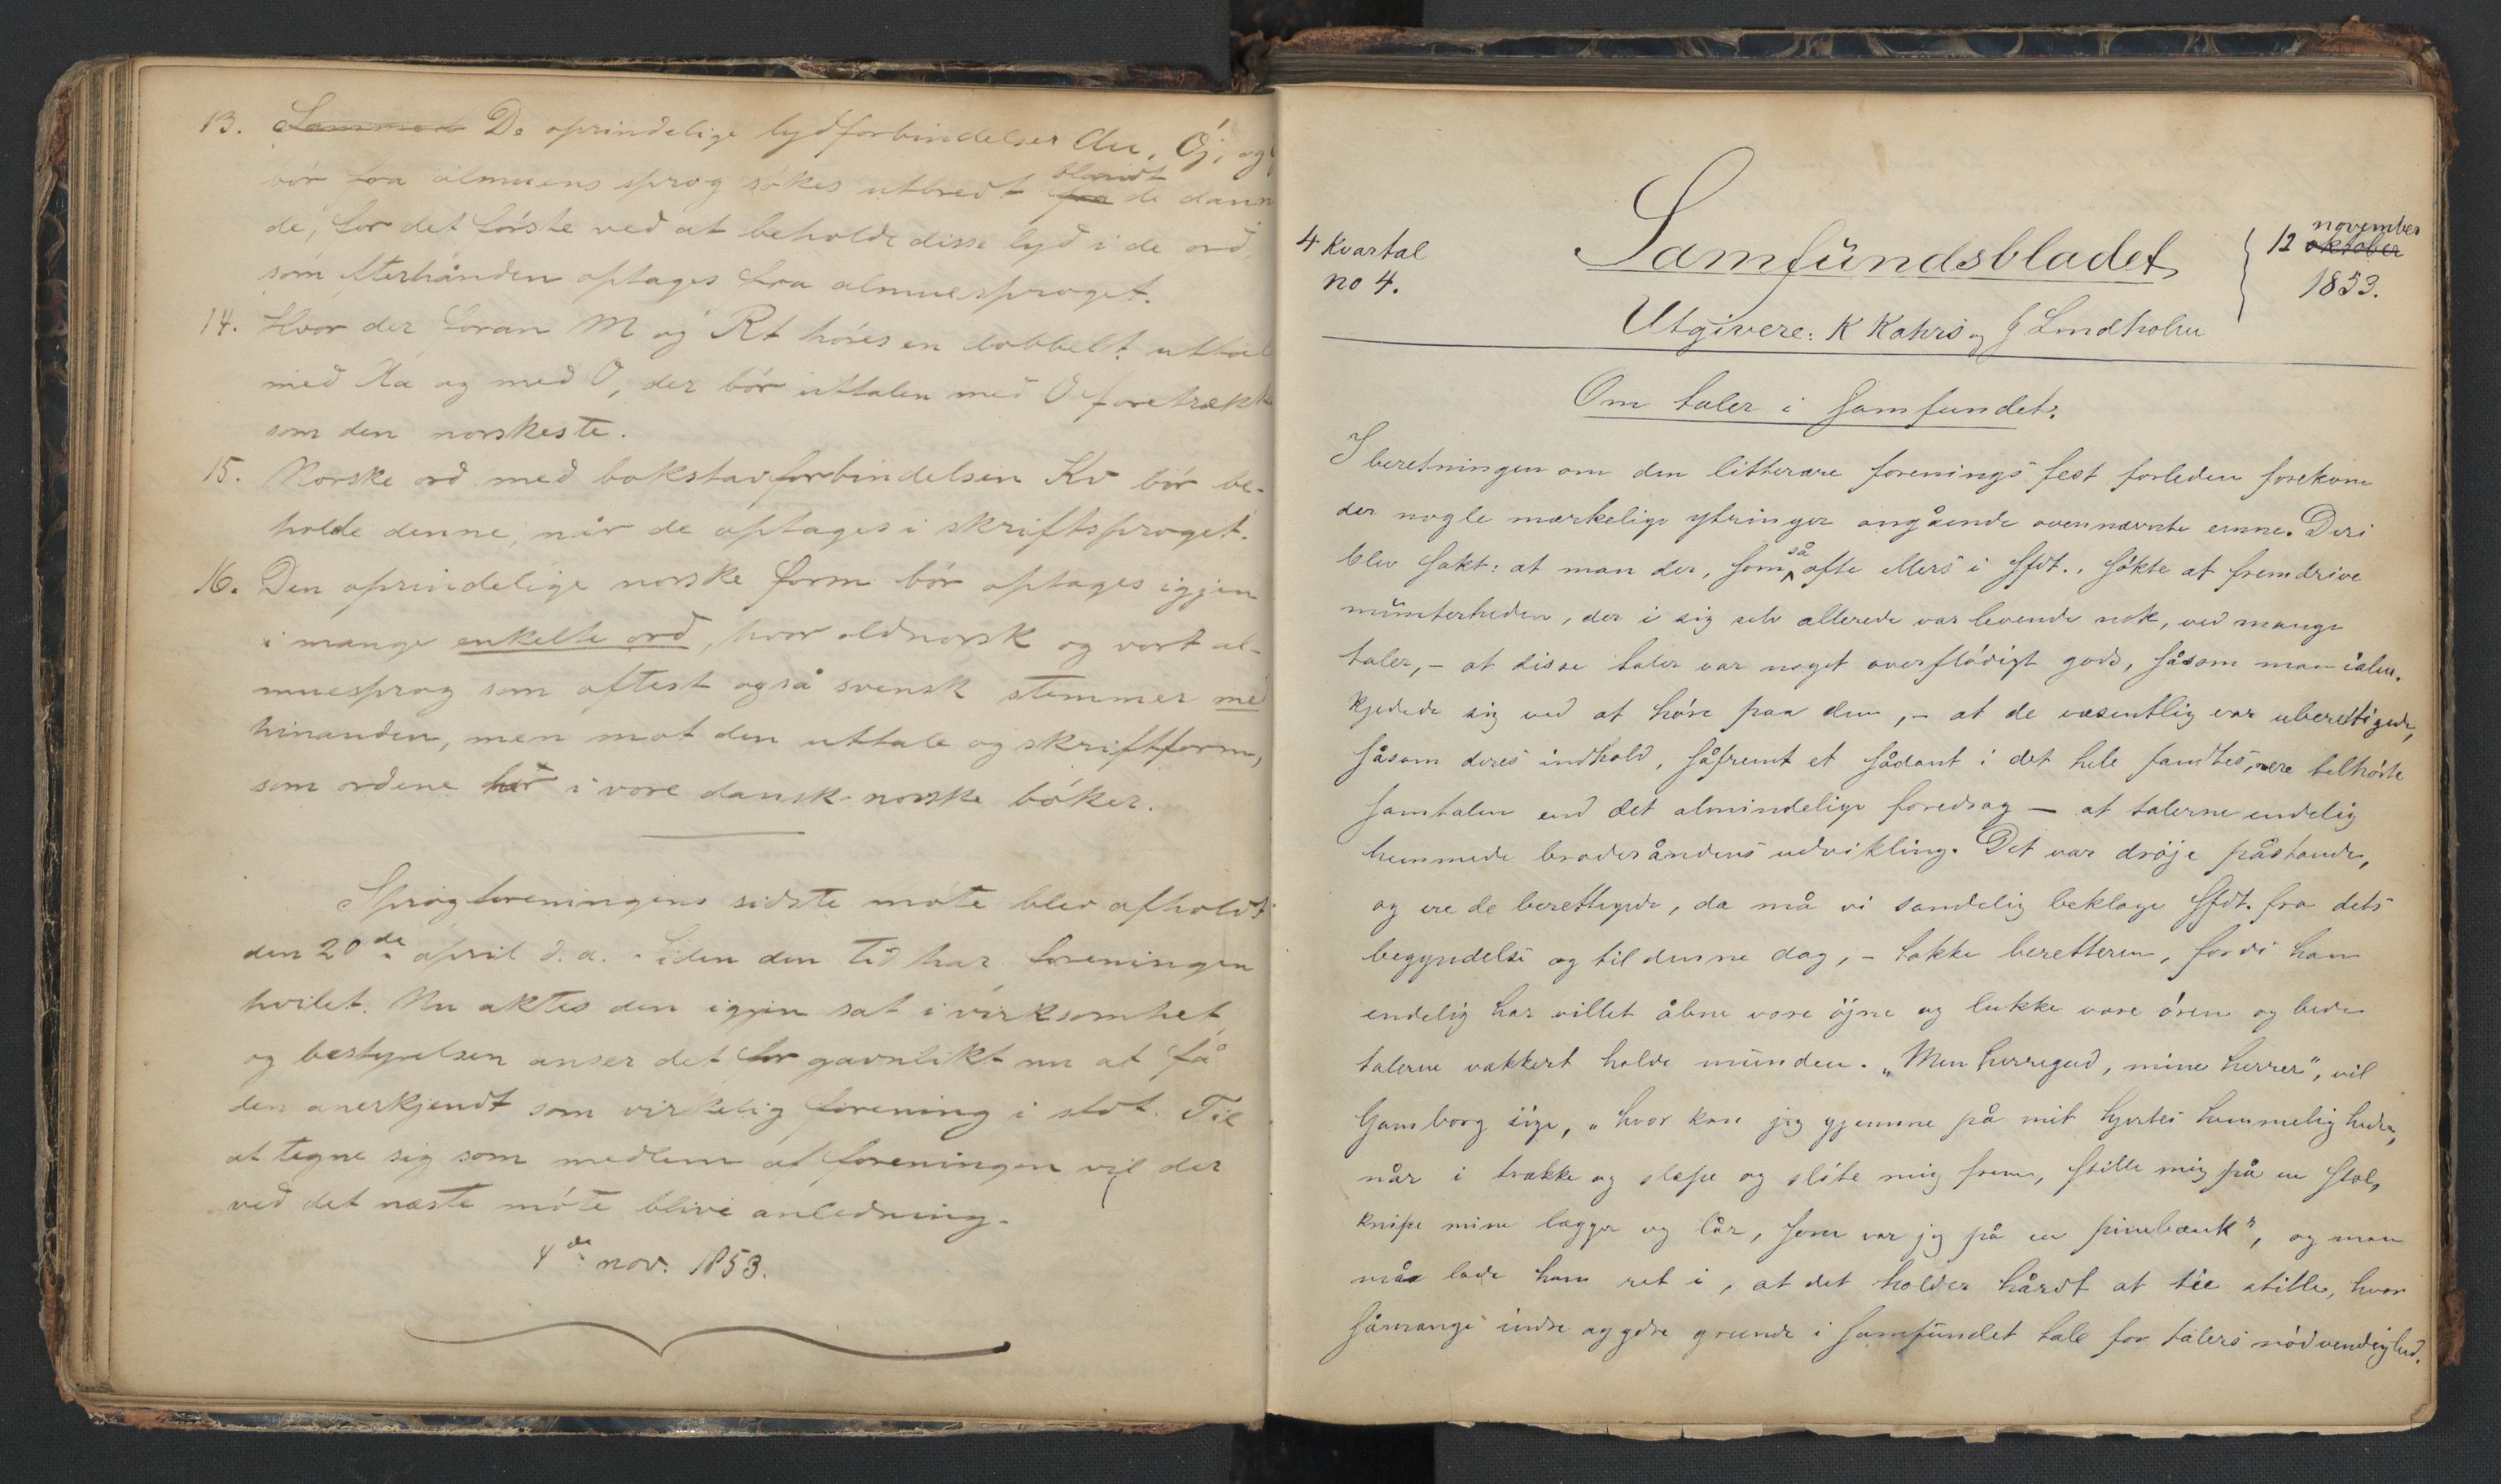 13. Sammed De oprindelige lydforbindelser Au, Öj, og
bör fra almuens sprog sökes utbredt fra blandt de dann
de, for det förste ved at beholde disse lyd i de ord,
som efterhånden optages fra almuesproget.
14. Hvor der foran M og Rt höres en dobbelt uttal
med Aa og med O, der bör uttalen med O foretrækk
som den norskeste.
15. Norske ord med bokstavforbindelsen Kv bör be-
holde denne, når de optages i skriftsproget.
16. Den oprindelige norske form bör optages igjen
i mange enkelte ord, hvor oldnorsk og vort al-
muesprog som oftest også svensk stemmer med
hinanden, men mot den uttale og skriftform,
som ordene har i vore dansk-norske böker.
Sprogforeningens sidste möte blev afholdt
den 20de april d.a. Siden den tid har foreningen
hvilet. Nu aktes den igjen sat i virksomhet
og bestyrelsen anser det for gavnlikt nu at få
den anerkjendt som virkelig forening i sfdt. Til
at tegne sig som medlem af foreningen vil der
ved det næste möte blive anledning.
4de nov. 1853.
4 Kvartal
no 4.
Samfundsbladet
12 oktober november
1853.
Utgivere: K Kahrs og J Lindholm
Om taler i samfundet.
I beretningen om den litterære forenings fest forleden forekom
der nogle mærkelige ytringer angående ovennævnte emne. Deri
blev sakt: at man der, som så ofte ellers i Sfdt., sökte at fremdrive
munterheden, der i sig selv allerede var levende nok, ved mange
taler, – at disse taler var noget overflödigt gods, såsom man i alm.
kjedede sig ved at höre paa dem, – at de væsentlig var uberettigede,
såsom deres indhold, såfremt et sådant i det hele fandtes, mere tilhörte
samtalen end det almindelige foredrag – at talerne endelig
hemmede broderåndens udvikling. Det var dröje påstande,
og ere de berettigede, da må vi sandelig beklage Sfdt. fra dets
begyndelse og til denne dag, – takke beretteren, fordi han
endelig har villet åbne vore öjne og lukke vore ören og bede
talerne vakkert holde munden. „Men herregud, mine herrer", vil
Gamborg sige, „hvor kan jeg gjemme på mit hjertes hemmeligheder,
når i trække og slæpe og slite mig frem, stille mig på en stol,
knipe mine lægger og lår, som var jeg på en pinebænk", og man
må lade ham ret i, at det holder hårdt at tie stille, hvor
såmange indre og ydre grunde i samfundet tale for talers nödvendighed.